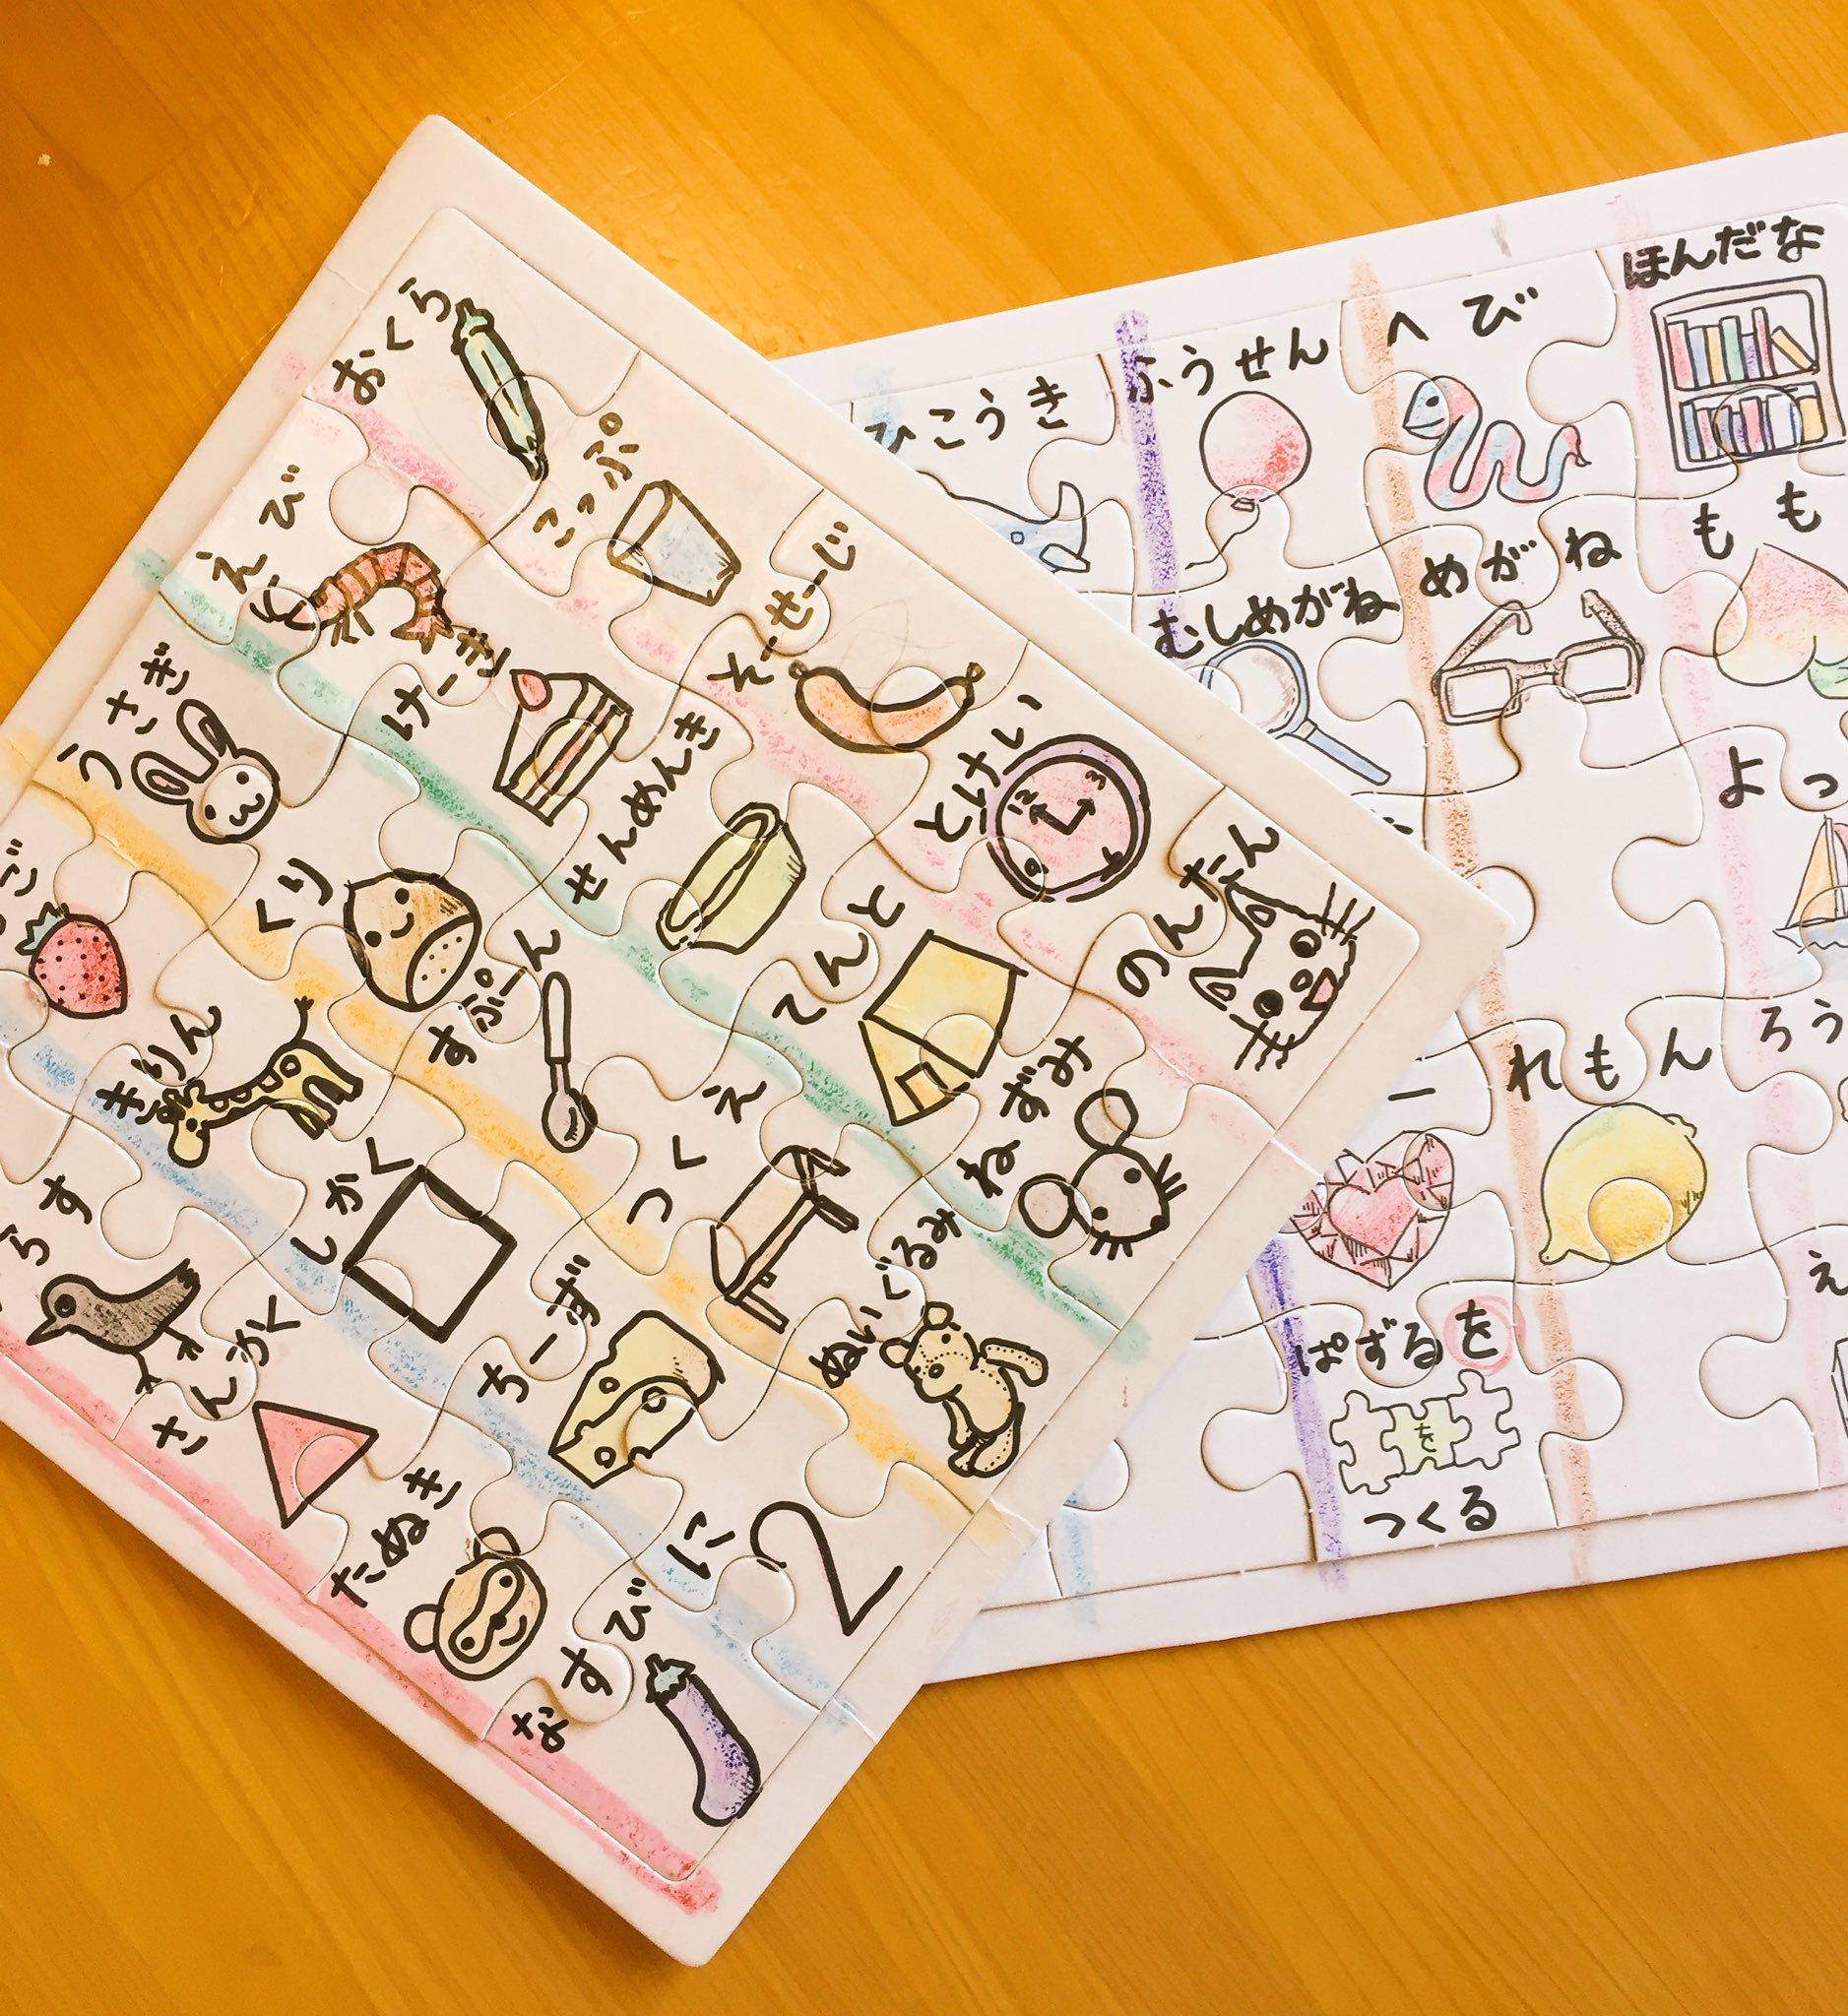 おくら
えび
うさぎ
ご
こっぷ
けーき
くり
きりん
らす
そーせーじ
せんめんき
すぷーん
しかく
さんかく
とけい
12
3
てんと
つくえ
ちーず
たぬき
のんたん
ねずみ
ぬいぐるみ
に
2
なすび
ひこうき
ふうせん
へび
ほんだな
むしめがね
めがね
もも
よっ
ー
れもん
ろう
ぱずるを
を
つくる
え